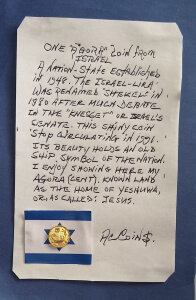 ONE "AGORA" COIN FROM
ISRAEL
A NATION-STATE ESTABLISHED
IN 1948. THE ISRAEL-LIRA
WAS RENAMED "SHEKEL" IN
1980 AFTER MUCH DEBATE
IN THE "KNESSET" OR ISRAEL'S
SENATE. THIS SHINY COIN
STOP CIRCULATING IN 1991.
ITS BEAUTY HOLDS AN OLD
SHIP, SYMBOL OF THE NATION.
I ENJOY SHOWING HERE MY
AGORA (CENT). KNOWN LAND
AS THE HOME OF YESHUWA,
OR: AS CALLED: JESUS.